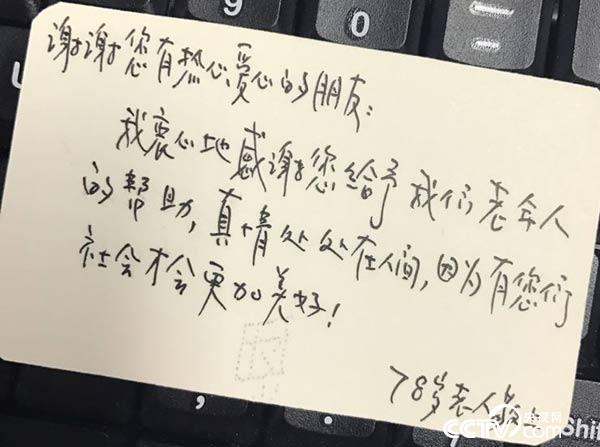 9
0
谢谢您有热心、爱心的朋友：
我衷心地感谢您给予我们老年人
的帮助，真情处处在人间，因为有您们
社会才会更加美好！
78岁老人
央视网
CCTV.com
Shif
, .